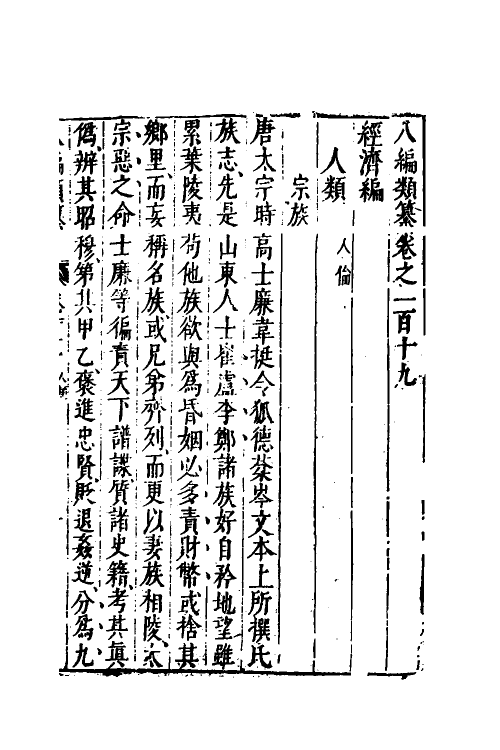 八編類纂卷之一百十九
經濟編
人類 人倫
宗族
唐太宗時高士廉韋挺令狐德棻岑文本上所撰氏
族志先是山東人士崔盧李鄭諸族好自矜地望雖
累葉陵夷苟他族欲與爲昏姻必多責財幣或捨其
鄉里而妄稱名族或兄弟齊列而更以妻族相陵太
宗惡之命士廉等徧責天下譜諜質諸史籍考其眞
僞辨其昭穆第其甲乙褒進忠賢貶退姦逆分爲九